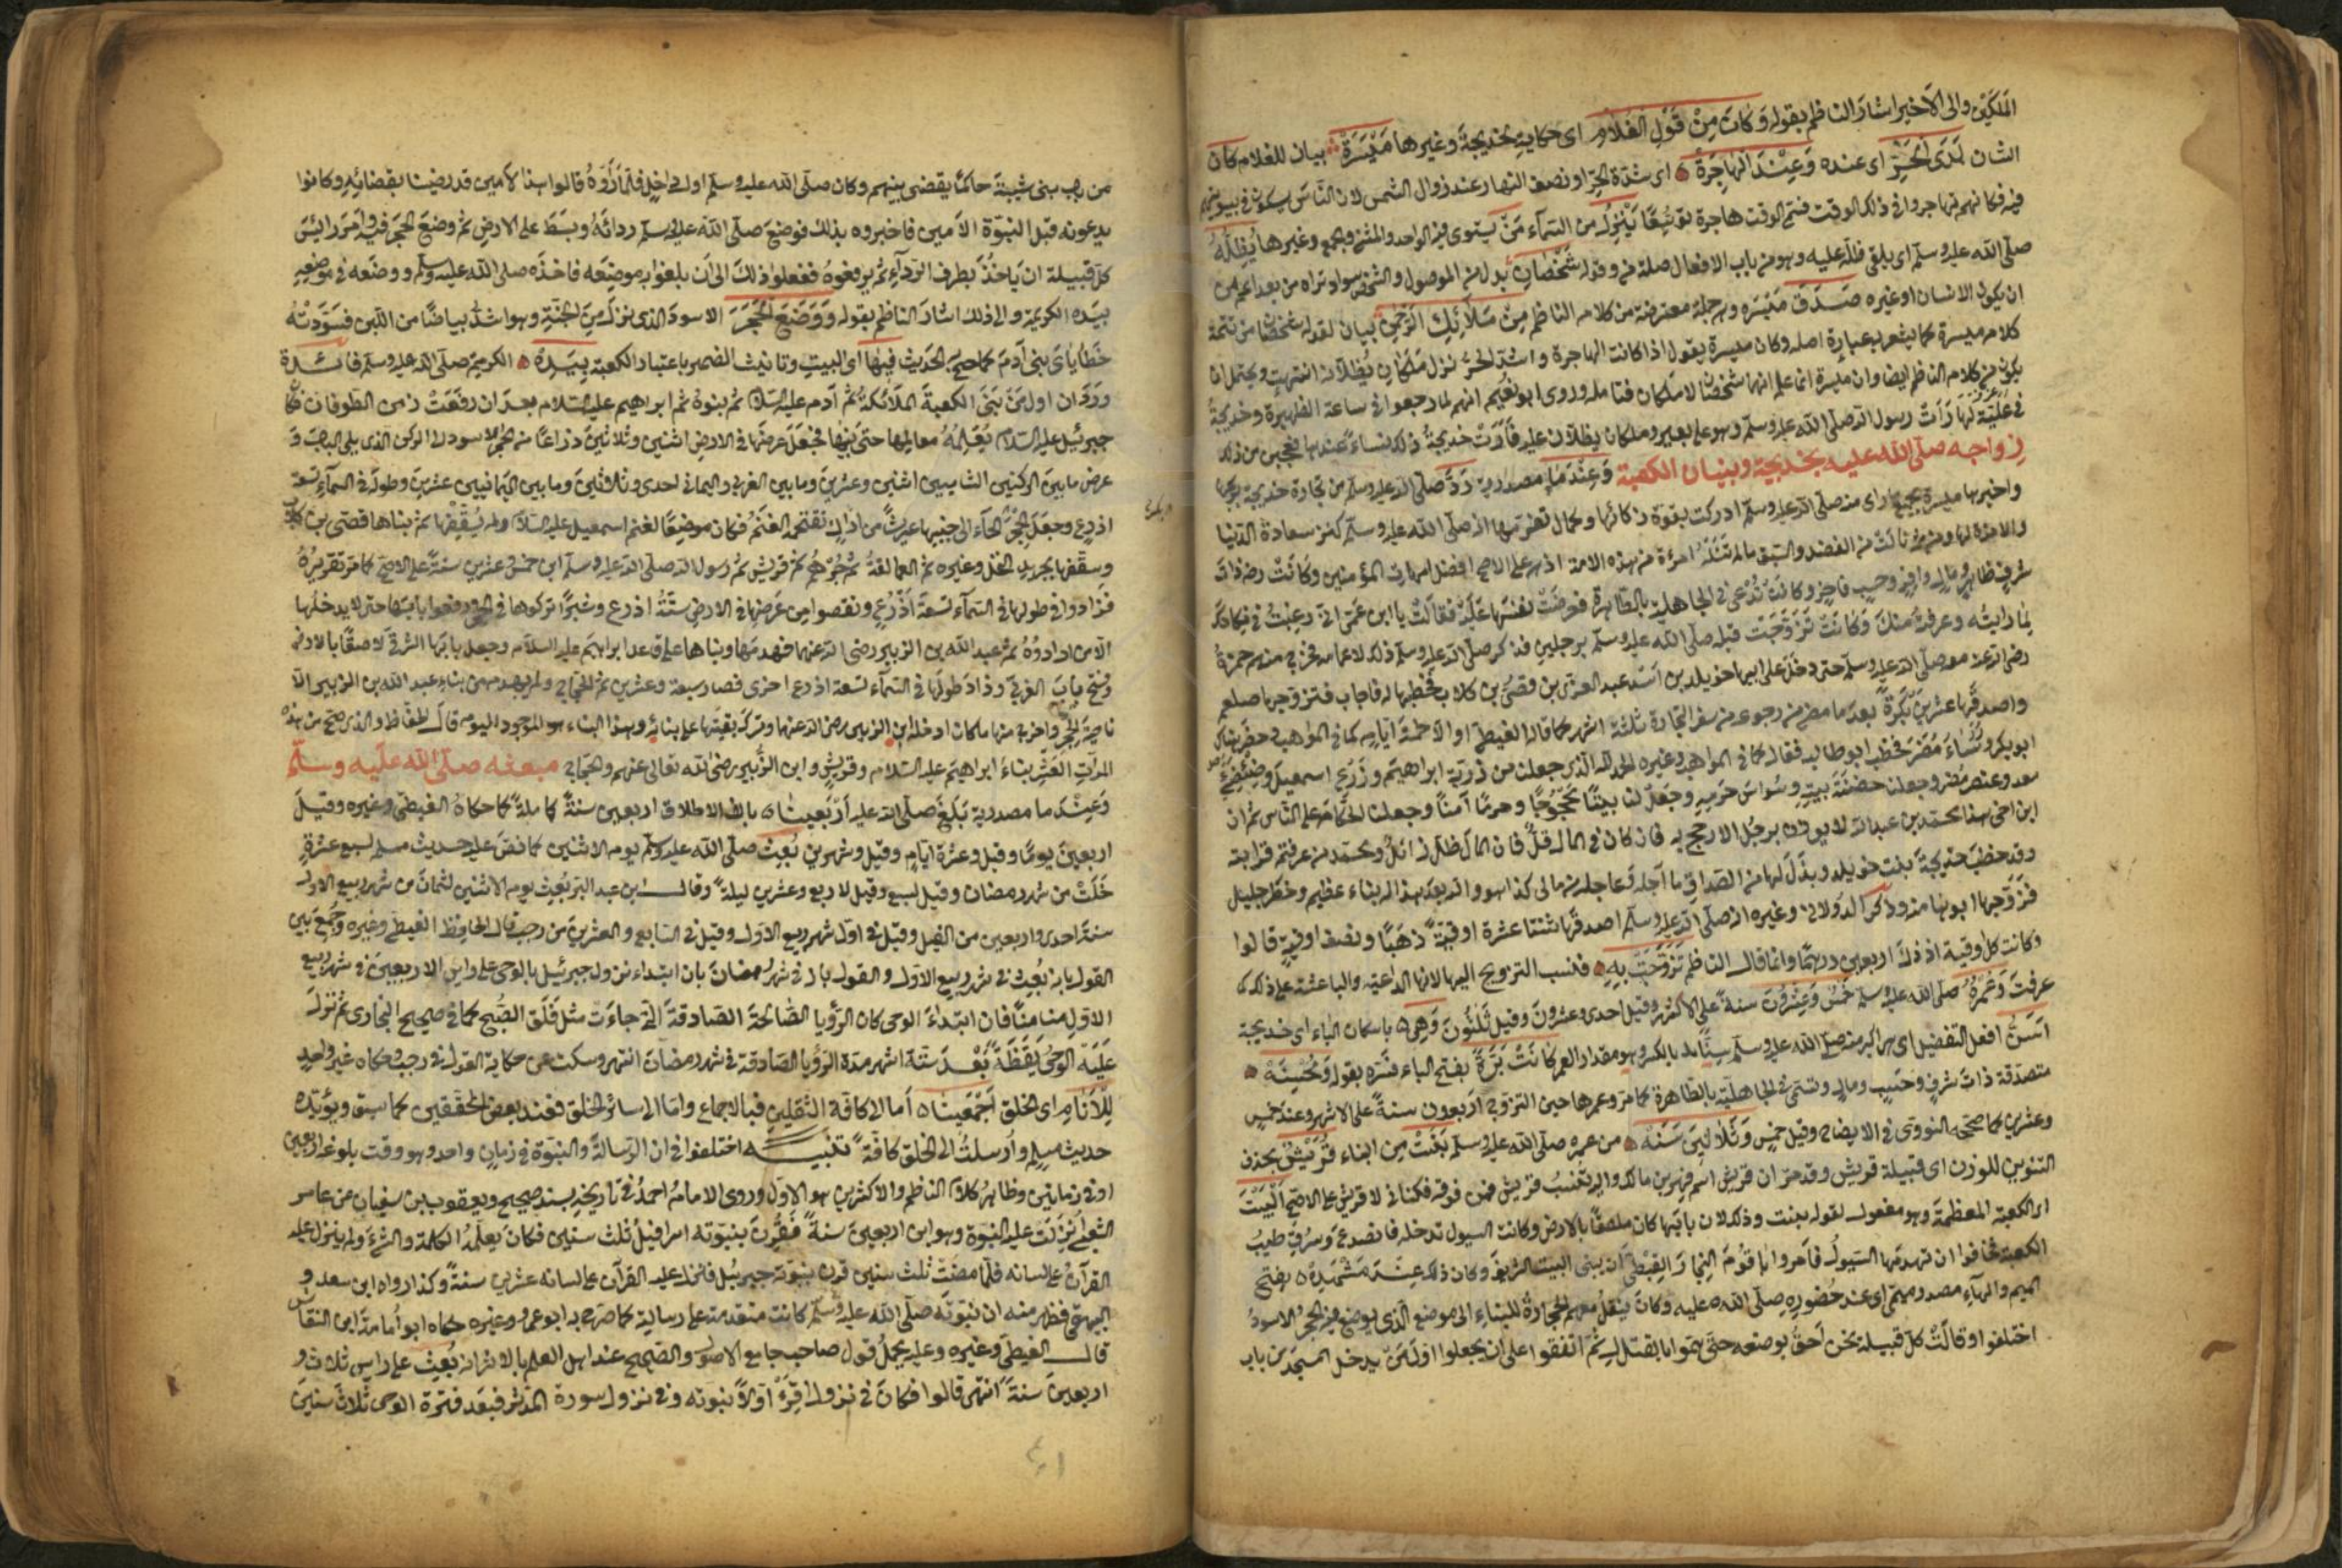 الملكين والى الاخير اشار الناظم بقوله وَكَانَ مِنْ قَوْلِ الغُلَامِ اى حكاية لخديجة وغيرها مَيْسَرَةْ بيان للغلام كان
الشان لَدَى الْحَرِّ اى عنده وَعِنْدَ الْهَاجِرَةْ اى شدة الحر او نصف النهار عند زوال الشمس لان الناس يسكنون في بيوتهم
فيه فكانهم تهاجروا في ذلك الوقت فسمى الوقت هاجرة توسّعًا يَنْزِلُ من السمآء مَنْ يستوى فيه الواحد والمثنى والجمع وغيرها يُظِلُّهُ
صلى الله عليه وسلم اى يلقى ظله عليه وهو من باب الافعال صلة من وقوله شَخْصَانِ بدل من الموصول والشخص سواد تراه من بعد اعم من
ان يكون الانسان او غيره صَدَقَ مَيْسَره وهى جملة معترضة من كلام الناظم مِنْ مَلآئِكِ الرَّحْمٰنِ بيان لقوله شخصان من تتمة
كلام ميسرة كما يشعر به عبارة اصله وكان ميسرة يقول اذا كانت الهاجرة واشتد الحر نزل ملكان يظلانه انتهت ويحتمل ان
يكون من كلام الناظم ايضا وان ميسرة انما علم انهما شخصان لا ملكان فتامله وروى ابو نعيم انهم لما رجعوا في ساعة الظهيرة وخديجة
في علية لها رَاَت رسول الله صلى الله عليه وسلم وهو على بعير وملكان يظلان عليه فاَرَتْ خديجةُ ذلك نساءً عندها فعجبن من ذلك
زواجه صلى الله عليه بخديجة وبنيان الكعبة وَعِنْدَ مَا مصدرية رَدَّ صلى الله عليه وسلم من تجارة خديجة بربحها
واخبرها ميسرة بجميع ما راى منه صلى الله عليه وسلم ادركت بقوة ذكائها وكمال تفرسها انه صلى الله عليه وسلم كنز سعادة الدنيا
والاخرة لها ومن ثم نالت من الفضل والسبق ما لم تنله امرءة من هذه الامة اذ هى على الاصح افضل امهات المؤمنين وكانت رضى ذات
شرف ظاهر ومال وافر وحسب فاخر وكانت تُدعى في الجاهلية بالطاهرة فعرضت نفسها عليه فقالت يا ابن عمى انى رغبت فيك
لما رايته وعرفته منك وَكَانَتْ تَزَوَّجَتْ قبله صلى الله عليه وسلم برجلين فذكر صلى الله عليه وسلم ذلك لاعمامه فخرج منهم حمزة
رضى الله عنه معه صلى الله عليه وسلم حتى دخل على ابيها خويلد بن اسد بن عبد العزى بن قصى بن كلاب فخطبها له فاجاب فتزوجها صلعم
واصدقها عشرين بَكْرَةً بعد ما مضى من رجوعه من سفر التجارة ثلثة اشهر كما قاله الغيطى او الا خمسة ايام كما في المواهب وحضر
ابو بكر ورؤساء مضر فخطب ابو طالب فقال كما في المواهب وغيره الحمد لله الذى جعلنا من ذرية ابراهيم وزرع اسمعيل وضئضئ
معد وعنصر مضر وجعلنا حضنة بيته وسُوّاس حرمه وجعل لنا بيتًا محجوجًا وحرمًا آمنًا وجعلنا الحكام على الناس ثم ان
ابن اخى هذا محمد بن عبد الله لا يوزن برجل الا رجح به فان كان في المال قلّ فان المال ظل زائل ومحمد من عرفتم قرابته
وقد خطب خديجة بنت خويلد وبذل لها من الصداق ما آجله وعاجله من مالى كذا وهو والله بعد هذا له نباء عظيم وخطر جليل
فزوجها ابوها منه وذكر الدولابى وغيره انه صلى الله عليه وسلم اصدقها ثنتا عشرة اوقية ذهبًا ونصف اوقية قالوا
وكانت كل اوقية اذ ذاك اربعين درهمًا وانما قال الناظم تَزَوَّجَتْ بِهِ فنسب التزويج اليها لانها الداعية والباعثة على ذلك كما
عرفت وَعُمْرُهُ صلى الله عليه وسلم خَمْسٌ وَعِشْرُونَ سنة على الاكثر وقيل احدى وعشرون وقيل ثلثون وَهِى باسكان الياء اى خديجة
اَسَنُّ افعل التفضيل اى هى اكبر منه صلى الله عليه وسلم سِنًّا بالكسر وهو مقدار العمر كَانَتْ بَرَّةً بفتح الباء فسره بقوله وَمُحْسِنَهْ
متصدقة ذات شرف وحسب ومال وتسمى في الجاهلية بالطاهرة كما مر وعمرها حين التزويج اربعون سنة على الاشهر وعند خمس
وعشرين كما صححه النووى في الايضاح وقيل خمس وَثَلَاثِينَ سَنَهْ من عمره صلى الله عليه وسلم بَنَتْ من ابناء قُرَيْشٌ بحذف
التنوين للوزن اى قبيلة قريش وقد مر ان قريش اسم فهر بن مالك واليه تنسب قريش فمن فوقه فكنانى لا قرشى على الاصح اَلْبَيْتَ
اى الكعبة المعظمة وهو مفعول لقوله بنت وذلك لان بابها كان ملصقًا بالارض وكانت السيول تدخله فانصدعت وسرق طيبُ
الكعبة فخافوا ان تهدمها السيول فاَمروا باقوم النجار القبطى ان يبنى البيت الشريف وكان ذلك عِنْدَ مَشْهَدِهْ بفتح
الميم والهآء مصدر ميمى اى عند حضوره صلى الله عليه وكان ينقل معهم الحجارة للبناء الى موضع الذى يوضع فيه الحجر الاسود
اختلفوا وقالت كل قبيلة نحن احق بوضعه حتى هموا بالقتال ثم اتفقوا على ان يجعلوا اول من يدخل المسجد من باب
من باب بنى شيبة حاكمًا يقضى بينهم وكان صلى الله عليه وسلم اول داخل فلما رَاَوْهُ قالوا هذا الامين قد رضينا بقضائه وكانوا
يدعونه قبل النبوة الامين فاخبروه بذلك فوضع صلى الله عليه وسلم ردائَهُ وبسط على الارض ثم وضع الحجر فيه وامر رئيس
كل قبيلة ان ياخذ بطرف الردآء ثم يرفعوه ففعلوا ذلك الى ان بلغوا به موضعه فاخذه صلى الله عليه وسلم ووضعه في موضعه
بيده الكريمة والى ذلك اشار الناظم بقوله وَوَضَعَ الْحَجَرَ الاسود الذى نزل من الجنة وهو اشد بياضًا من اللبن فسودته
خطايا بنى آدم كما صح به الحديث فيها اى البيت وتانيث الضمير باعتبار الكعبة بِيَدِهْ الكريمة صلى الله عليه وسلم فائدة
ورد ان اول من بَنَى الكعبة الملائكة ثم آدم عليه السلام ثم بنوه ثم ابراهيم عليه السلام بعد ان رفعت زمن الطوفان فكان
جبرئيل عليه السلام يُعْلِمُهُ معالمها حتى بناها فجعل عرضها في الارض اثنين وثلاثين ذراعًا من الحجر الاسود الى الركن الذى يلى الباب و
عرض ما بين الركنين الشاميين اثنين وعشرين وما بين الغربى واليمانى احدى وثلاثين وما بين اليمانيين عشرين وطوله في السمآء تسعة
اذرع وجعل الحِجْرَ الى جنبها عريشًا من اراك تقتحمه الغنم فكان موضعًا لغنم اسمعيل عليه السلام ولم يُسَقِّفْها ثم بناها قصى بن كلاب
وسقفها بجريد النخل وغيره ثم العمالقة ثم جُرْهُم ثم قريش ثم رسول الله صلى الله عليه وسلم ابن خمس وعشرين سنة على الاصح كما مر تقريره
فزادوا في طولها في السمآء تسعة اَذْرُع ونقصوا من عرضها في الارض ستة اذرع وشبرًا تركوها في الحجر ورفعوا بابها حتى لا يدخلها
الا من ارادوه ثم عبد الله بن الزبير رضى الله عنهما فهدمها وبناها على قواعد ابراهيم عليه السلام وجعل بابها الشرقى لاصقًا بالارض
وفتح باب الغربى وزاد طولها في السمآء تسعة اذرع اخرى فصار سبعة وعشرين ثم الحجاج ولم يهدم من بناء عبد الله بن الزبير الا
ناحية الحجر واخرج منها ما كان ادخله ابن الزبير رضى الله عنهما وترك بقيتها على بنائه وهذا البناء هو الموجود اليوم قال الحفاظ والذى صح من هذه
المرات العشر بناء ابراهيم عليه السلام وقريش وابن الزبير رضى الله تعالى عنهم والحجاج مبعثه صلى الله عليه وسلم
وَعِنْدَ ما مصدرية بَلَغَ صلى الله عليه اَرْبَعِينَا بالف الاطلاق اربعين سنة كاملة كما حكاه الغيطى وغيره وقيل
اربعين يومًا وقيل وعشرة ايام وقيل وشهرين بُعِثَ صلى الله عليه وسلم يوم الاثنين كما نص عليه حديث مسلم لسبع عشرة
خَلَتْ من شهر رمضان وقيل لسبع وقيل لاربع وعشرين ليلة وقال ابن عبد البر بُعِثَ يوم الاثنين لثمان من شهر ربيع الاول
سنة احدى واربعين من الفيل وقيل في اول شهر ربيع الاول وقيل في السابع والعشرين من رجب قال الحافظ الغيطى وغيره وجمع بين
القول بانه بُعِثَ في شهر ربيع الاول والقول بانه في شهر رمضان بان ابتداء نزول جبرئيل بالوحى على راس الاربعين في شهر ربيع
الاول منامًا فان ابتداء الوحى كان الرؤيا الصالحة الصادقة التى جاءت مثل فلق الصبح كما في صحيح البخارى ثم نزل
عَلَيْهِ الوحى يَقَظَةً بعد ستة اشهر مدة الرؤيا الصادقة في شهر رمضان انتهى وسكت عن حكاية القول في رجب وحكاه غير واحد
لِلْاَنَامِ اى الخلق اَجْمَعِينَا اما الى كافة الثقلين فبالاجماع واما الى سائر الخلق فعند بعض المحققين كما سبق ويؤيده
حديث مسلم وارسلت الى الخلق كافة تنبيه اختلفوا في ان الرسالة والنبوة في زمان واحد وهو وقت بلوغه اربعين
او في زمانين وظاهر كلام الناظم والاكثرين هو الاول وروى الامام احمد في تاريخه بسند صحيح ويعقوب بن سفيان عن عامر
الشعبى اُنْزِلَتْ عليه النبوة وهو ابن اربعين سنة فقُرِنَ بنبوته اسرافيل ثلث سنين فكان يعلمه الكلمة والشئ ولم ينزل عليه
القرآن على لسانه فلما مضت ثلث سنين قرن بنبوته جبرئيل فانزل عليه القرآن على لسانه عشرين سنة وكذا رواه ابن سعد و
البيهقى فظهر منه ان نبوته صلى الله عليه وسلم كانت متقدمة على رسالته كما صرح به ابو عمر وغيره حكاه ابو اُمامة ابن النقاش
قال الغيطى وغيره وعليه يحمل قول صاحب جامع الاصول والصحيح عند اهل العلم بالاثر انه بُعث على راس ثلاث و
اربعين سنة انتهى قالوا فكان في نزول اقرء اولًا نبوته وفى نزول سورة المدثر فبعد فترة الوحى ثلاث سنين